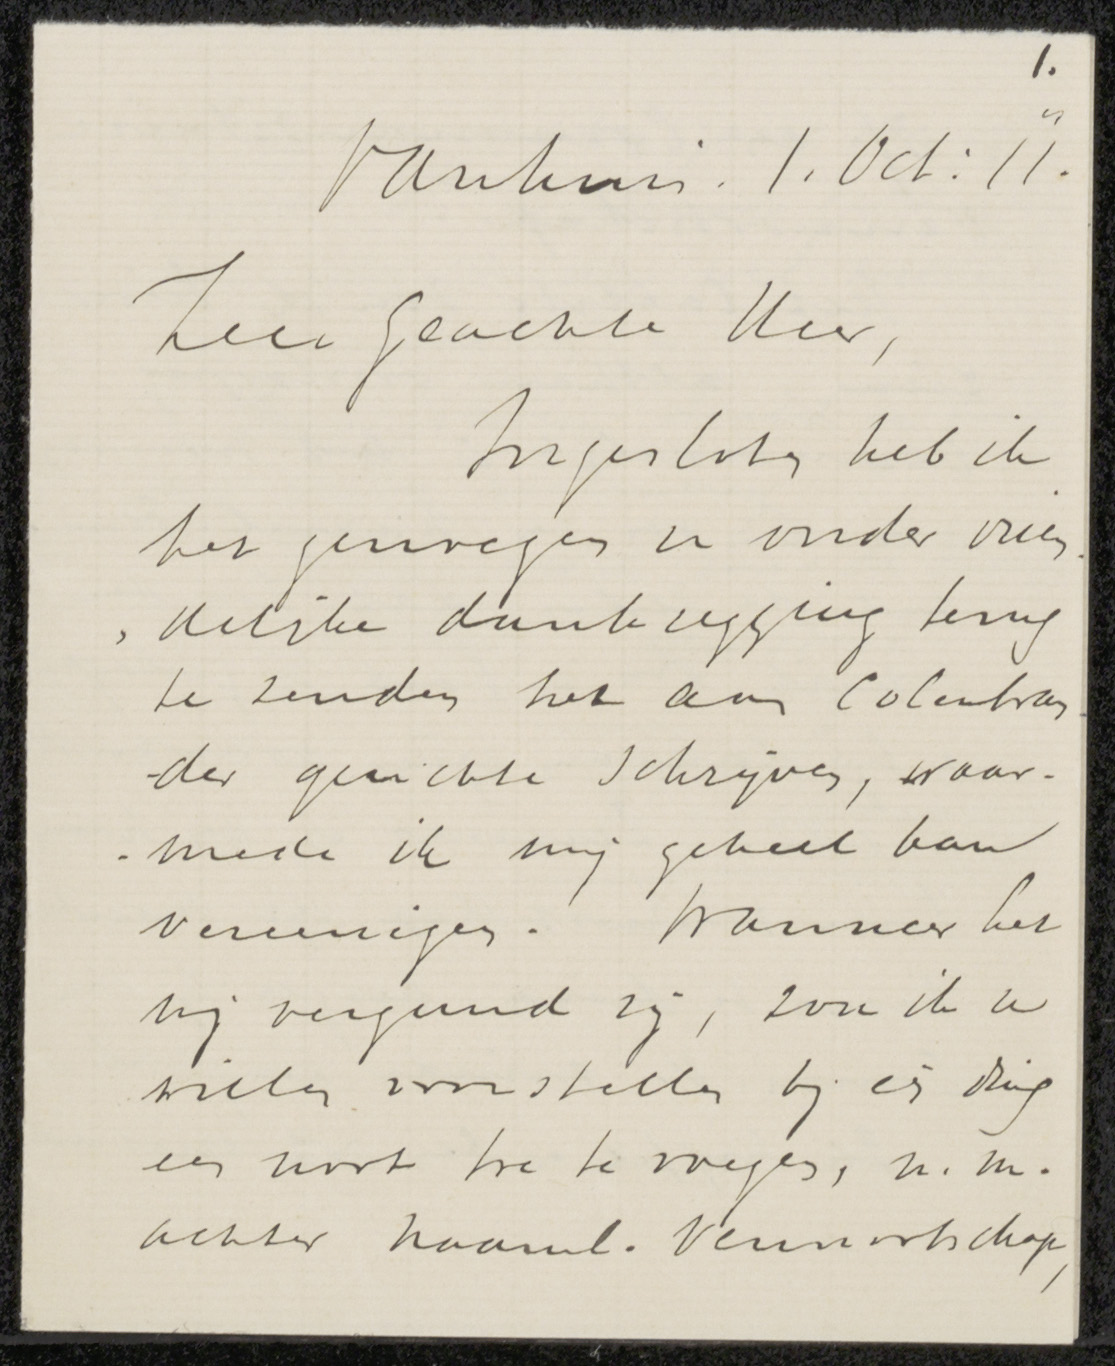 1.
1. Oct: 11.
Zeer geachte Heer,
Ingesloten heb ik
het genoegen u onder vrien-
delijke dankzegging terug
te zenden het aan Colenbran-
-der gerichte schrijven, waar-
-mede ik mij geheel kan
vereenigen. Wanneer het
mij vergund zij, zou ik u
willen voorstellen bij één ding
een noot toe te voegen, n.m.
achter Naaml. Vennootschap,